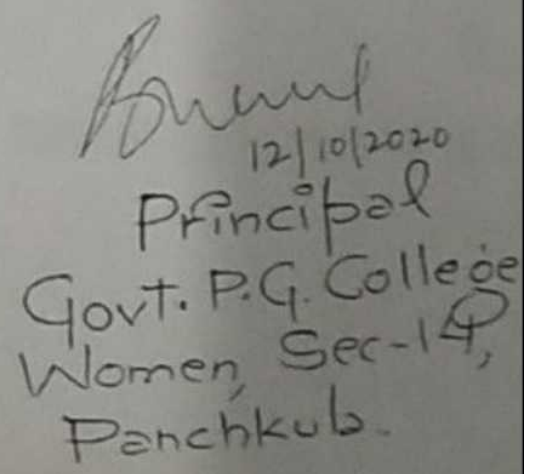 12/10/2020
Principal
Govt. P.G. College
Women, Sec-14,
Panchkula.